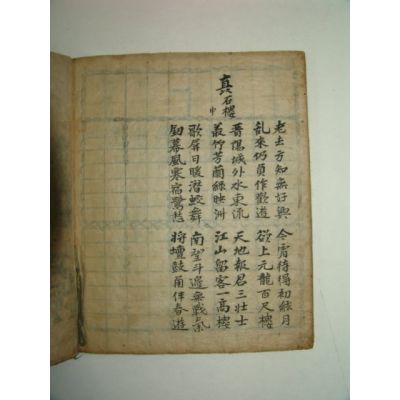 真石樓
老去方知無好興 今宵待得初絃月
乱來仍負作歡遊 欲上元龍百尺樓
晋陽城外水東流 天地報君三壯士
叢竹芳蘭綠映洲 江山留客一高樓
歌屏日暖潜蛟舞 南望斗邊無戰氣
釖幕風寒宿鷺愁 將壇鼓角伴春遊